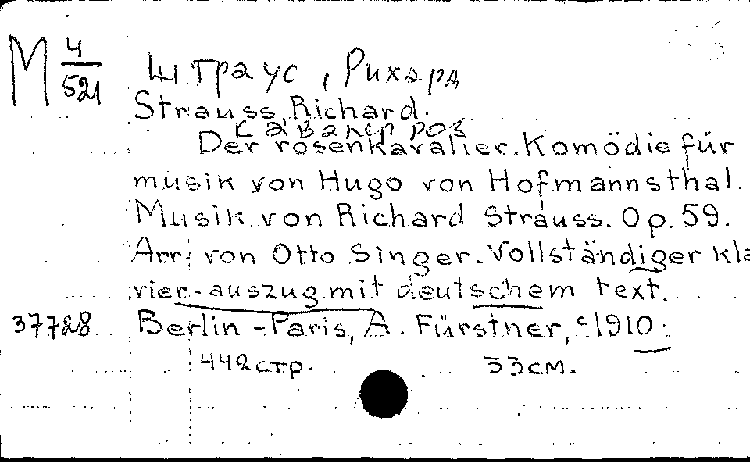 М 4/521 Штраус, Рихард
Strauss, Richard.
Кавалер роз
Der rosenkavalier. Komödie für
musik von Hugo von Hofmannsthal.
Musik von Richard Strauss. Op. 59.
Arr. von Otto Singer. Vollständiger kla
vier-auszug mit deutschem text.
37728 Berlin-Paris, A. Fürstner, c1910.
442 стр. 33 см.